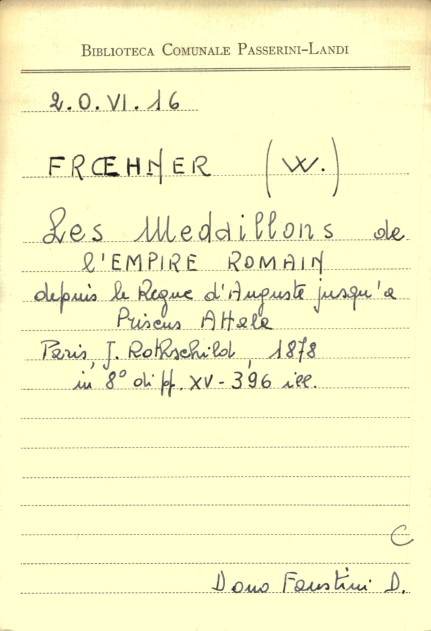 BIBLIOTECA COMUNALE PASSERINI-LANDI
2.0.VI.16
FRŒHNER (W.)
Les Medaillons de
l'EMPIRE ROMAIN
depuis le Regne d'Auguste jusqu'a
Priscus Attale
Paris, J. Rothschild, 1878
in 8° di pp. XV-396 ill.
C
Dono Faustini D.